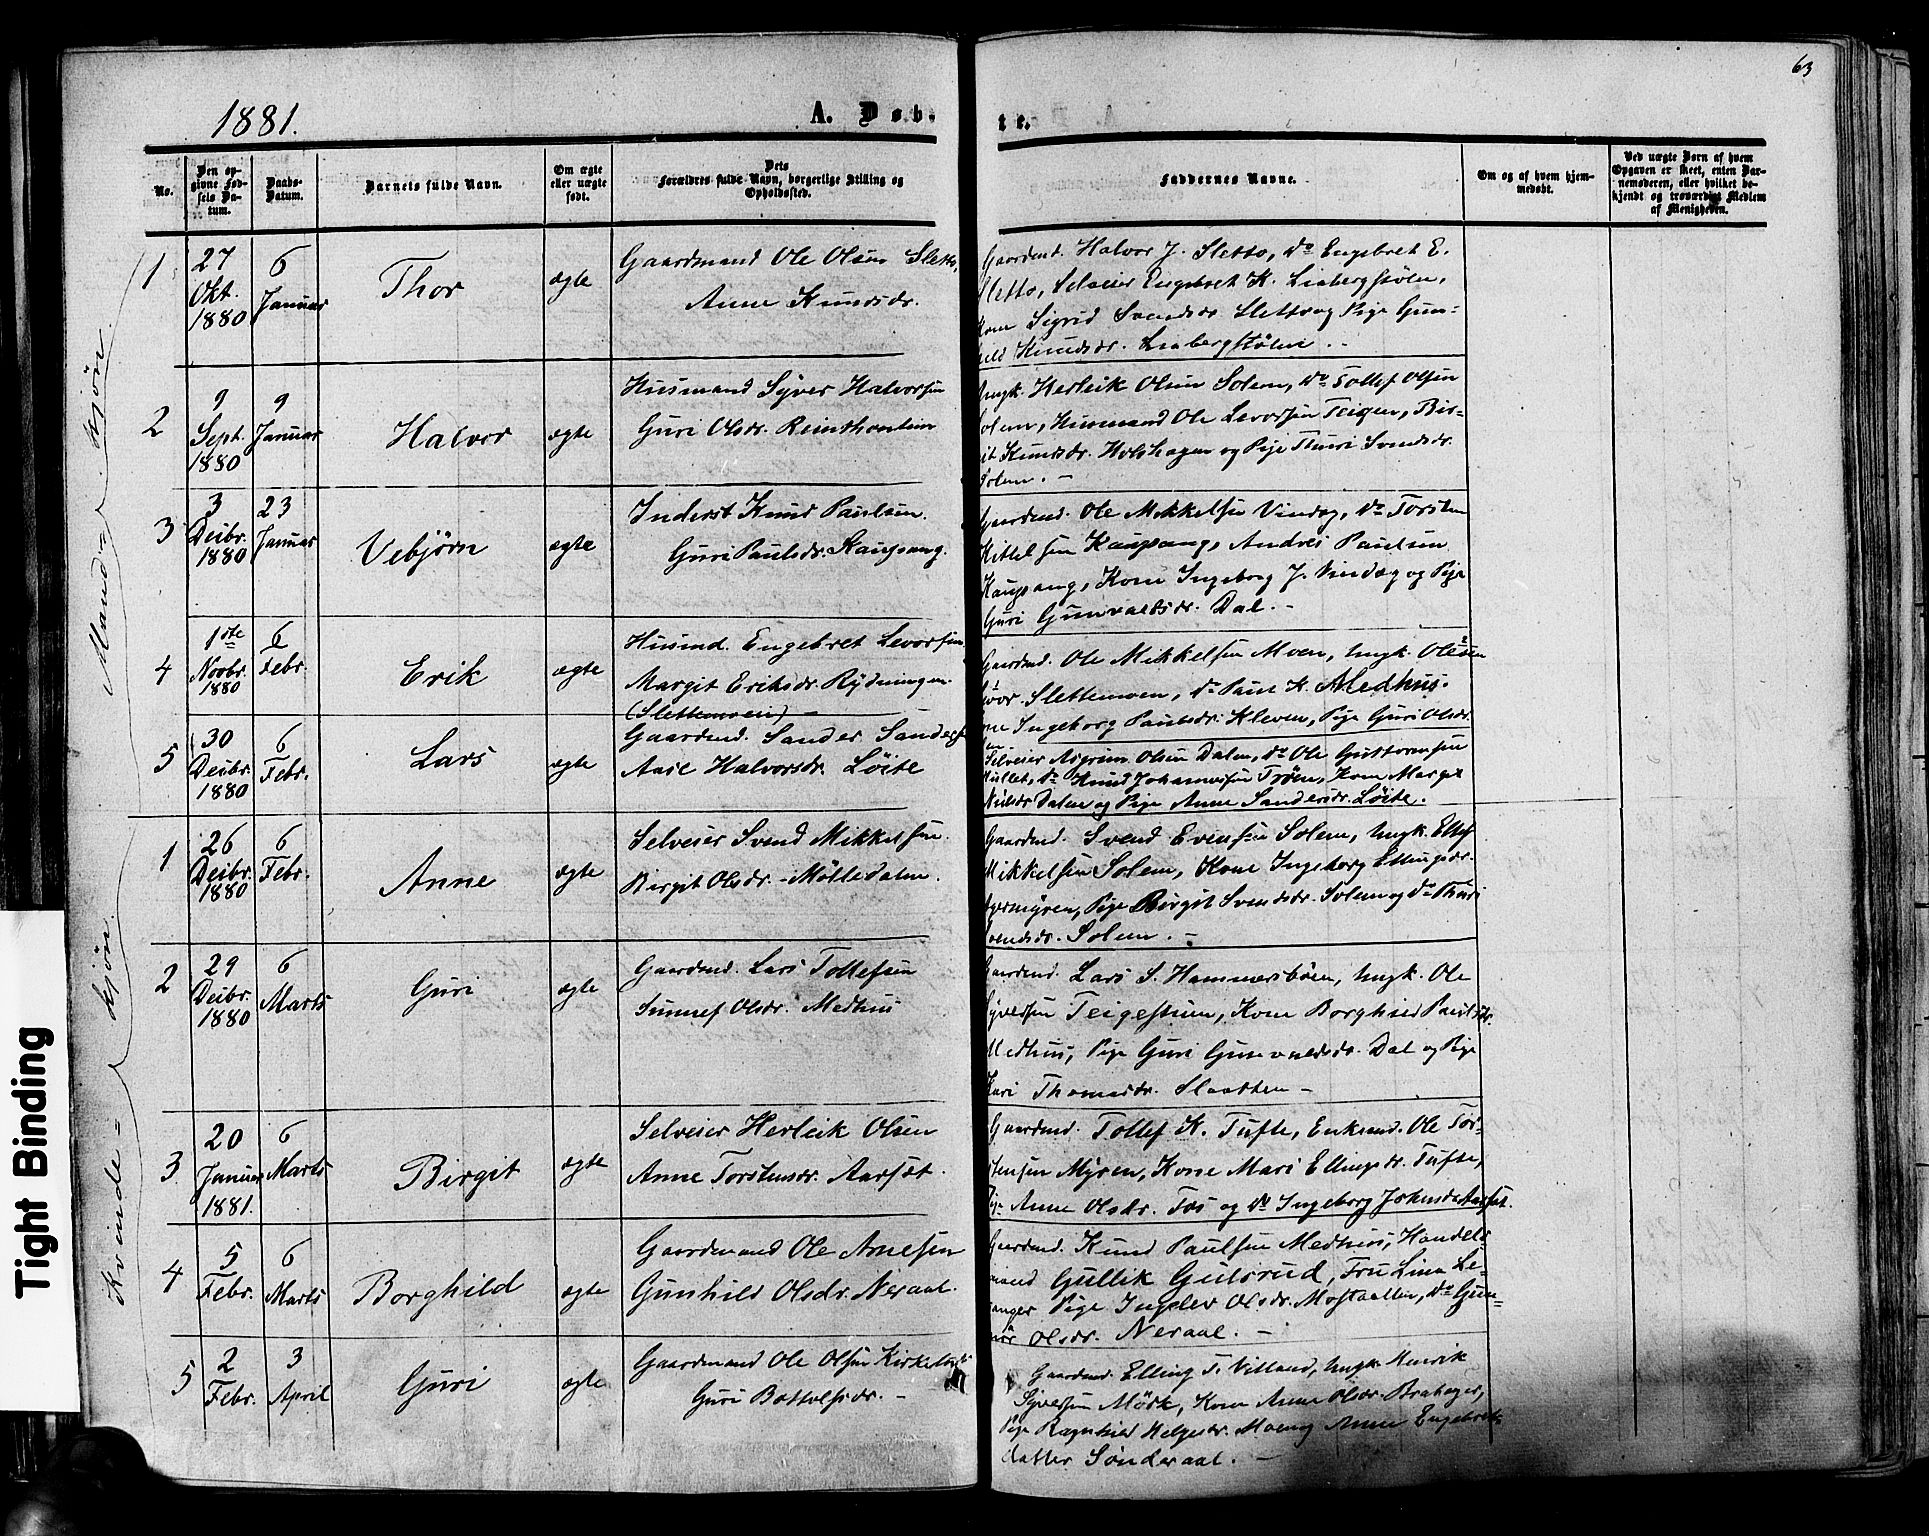 1881.
A. Døb-
te.
63
No.
Den op-
givne Fød-
sels Da-
tum.
Daabs-
Datum.
Barnets fulde Navn.
Om ægte
eller uægte
født.
Dets
Forældres fulde Navn, borgerlige Stilling og
Opholdssted.
Faddernes Navne.
Om og af hvem hjem-
medøbt.
Ved uægte Børn af hvem
Opgaven er skeet, enten Bar-
nemoderen, eller hvilket be-
kjendt og troværdigt Medlem
af Menigheden.
Mandkjøn.
1
27
Okt.
1880
6
Januar
Thor
ægte
Gaardmand Ole Olsen Sletto,
Anne Knudsdr.
Gaardmd. Halvor J. Sletto, do Engebret E.
Sletto, Selveier Engebret K. Liabergstølen,
Kone Sigrid Svendsdr. Sletto og Pige Gun-
hild Knudsdr. Liabergstølen. -
2
9
Sept.
1880
9
Januar
Halvor
ægte
Husmand Syver Halvorsen
Guri Olsdr.
Ungk. Herleik Olsen Solem, do Tollef Olsen
Solem, Husmand Ole Levorsen Teigen, Bir-
git Knudsdr. Holshagen og Pige Thuri Svendsdr.
Solem. -
3
3
Decbr.
1880
23
Januar
Vebjørn
ægte
Inderst Knud Paulsen
Guri Paulsdr. Kaupang.
Gaardmd. Ole Mikkelsen Vindeg, do Torsten
Kittelsen Kaupang, Andres Paulsen
Kaupang, Kone Ingeborg J. Vindeg og Pige
Guri Gunvaldsdr. Dal. -
4
1ste
Novbr.
1880
6
Febr.
Erik
ægte
Husmd. Engebret Levorsen
Margit Eriksdr. Rydningen.
(Slettemoen) -
Gaardmd. Ole Mikkelsen Moen, Ungk. Ole
Slettemoen, do Paul K. Medhus.
Kone Ingeborg Paulsdr. Kleven, Pige Guri Olsdr.
5
30
Decbr.
1880
6
Febr.
Lars
ægte
Gaardmd. Sander Sanders
Aase Halvorsdr. Løite
Selveier Asgrim Olsen Dalen, do Ole Guttormsen
Hullet, do Knud Johannesen Trøen, Kone Margit
Nilsdr. Dalen og Pige Anne Sandersdr. Løite.
Kvindekjøn.
1
26
Decbr.
1880
6
Febr.
Anne
ægte
Selveier Svend Mikkelsen.
Birgit Olsdr. - Mølledalen.
Gaardmd. Svend Evensen Solem, Ungk. Ellef
Mikkelsen Solem, Kone Ingeborg Ellingsdr.
Pige Birgit Svendsdr. Solem og do Thuri
Svendsdr. Solem. -
2
29
Decbr.
1880
6
Marts
Guri
ægte
Gaardmd. Lars Tollefsen
Sunnef Olsdr. Medhus
Gaardmd. Lars S. Hammersbøen, Ungk. Ole
Syversen Teigestuen, Kone Borghild Paulsdr.
Medhus, Pige Guri Gunvaldsdr. Dal og Pige
Kari Thomasdr. Slaatten -
3
20
Januar
1881.
6
Marts
Birgit
ægte
Selveier Herleik Olsen
Anne Torstensdr. Aarset.
Gaardmd. Tollef K. Tufte, Enkemd. Ole Tor-
stensen Myren, Kone Mari Ellingsdr. Tufte,
Pige Anne Olsdr. Fos og do Ingeborg Johnsdr. Aarset.
4
5
Febr.
6
Marts
Borghild
ægte
Gaardmand Ole Arnesen
Gunhild Olsdr. Neraal.
Gaardmd. Knud Paulsen Medhus, Handels-
mand Gullik Gulsrud, Fru Lina Le-
Pige Ingelev Olsdr. Mostaatten, do Gun-
nør Olsdr. Neraal. -
5
2
Febr.
3
April
Guri
ægte
Gaardmand Ole Olsen
Guri Bottolfsdr. -
Gaardmd. Elling T. Villand, Ungk. Henrik
Syversen Mørk, Kone Anne Olsdr. Brahager,
Pige Ragnhild Helgesdr. Moen og Anne Engebrets-
datter Sønderaal. -
Tight Binding